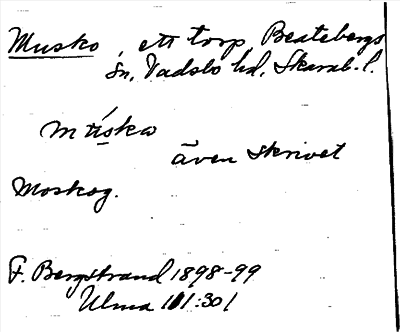 Musko, ett torp, Beatebergs
sn, Vadsbo hd, Skarab. l.
även skrivet
Moskog.
F. Bergstrand 1898-99
Ulma 111:301